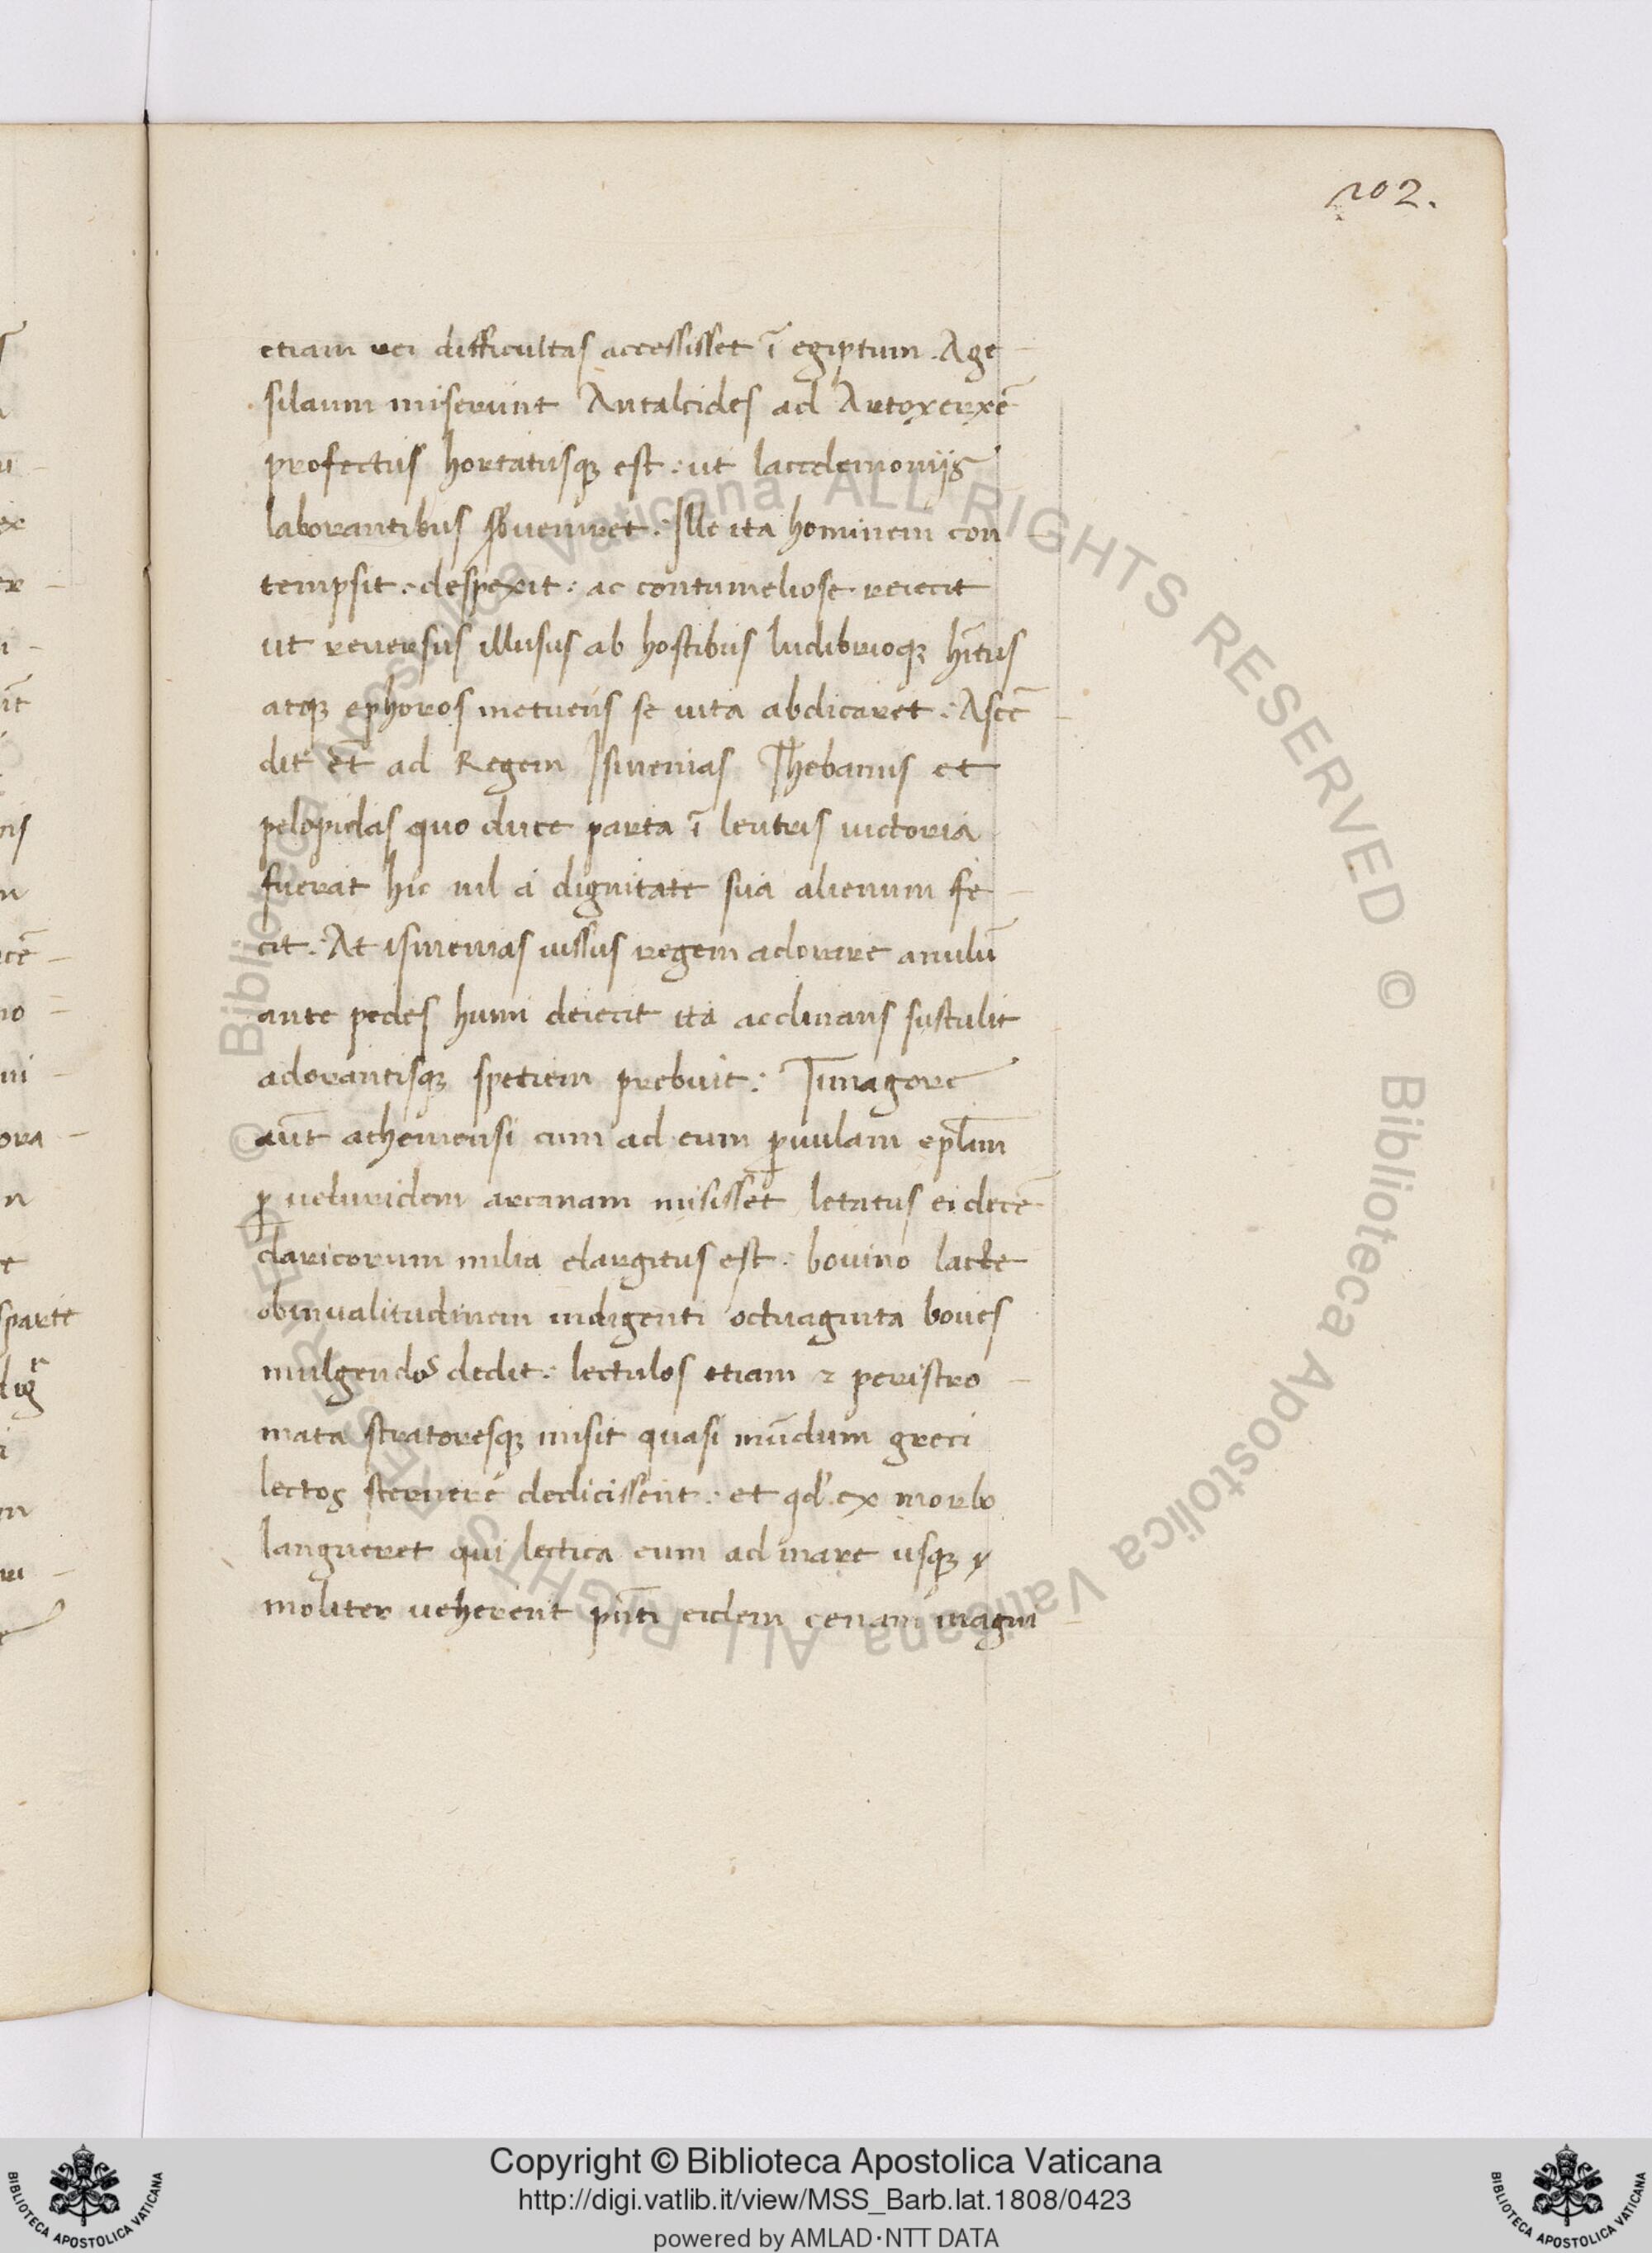 202.
etiam rei difficultas accessisset ī egiptum. Age
silaum miserunt Antalcides ad Artoxerxē
profectus hortatusqꝫ est: ut lacedemoniis
laborantibus sb̄ueniret: Ille ita hominem con
tempsit: despexit: ac contumeliose reiecit
ut reuersus illusus ab hostibus ludibrioqꝫ hītus
atqꝫ ephoros metuens se uita abdicaret: Ascē
dit et̄ ad Regem Ismenias Thebanus et
pelopidas quo duce parta ī leutris uictoria
fuerat hic nil a dignitate sua alienum fe
cit: At ismenias iussus regem adorare anulū
ante pedes humi deiecit ita acclinans sustulit
adorantisqꝫ spetiem prebuit: Timagore
aūt atheniensi cum ad eum ꝑuulam epl̄am
ꝑ veluridem arcanam misisset letatus ei decē
daricorum milia elargitus est: bouino lacte
obinualitudinem indigenti octuaginta boues
mulgendos dedit: lectulos etiam ⁊ peristro
mata stratoresqꝫ misit quasi mūdum greci
lectos sternere dedicissent: et qd̓ ex morbo
langueret qui lectica eum ad mare usqꝫ
moliter ueherent pn̄ti eidem cenam magni
Copyright © Biblioteca Apostolica Vaticana
http://digi.vatlib.it/view/MSS_Barb.lat.1808/0423
powered by AMLAD·NTT DATA